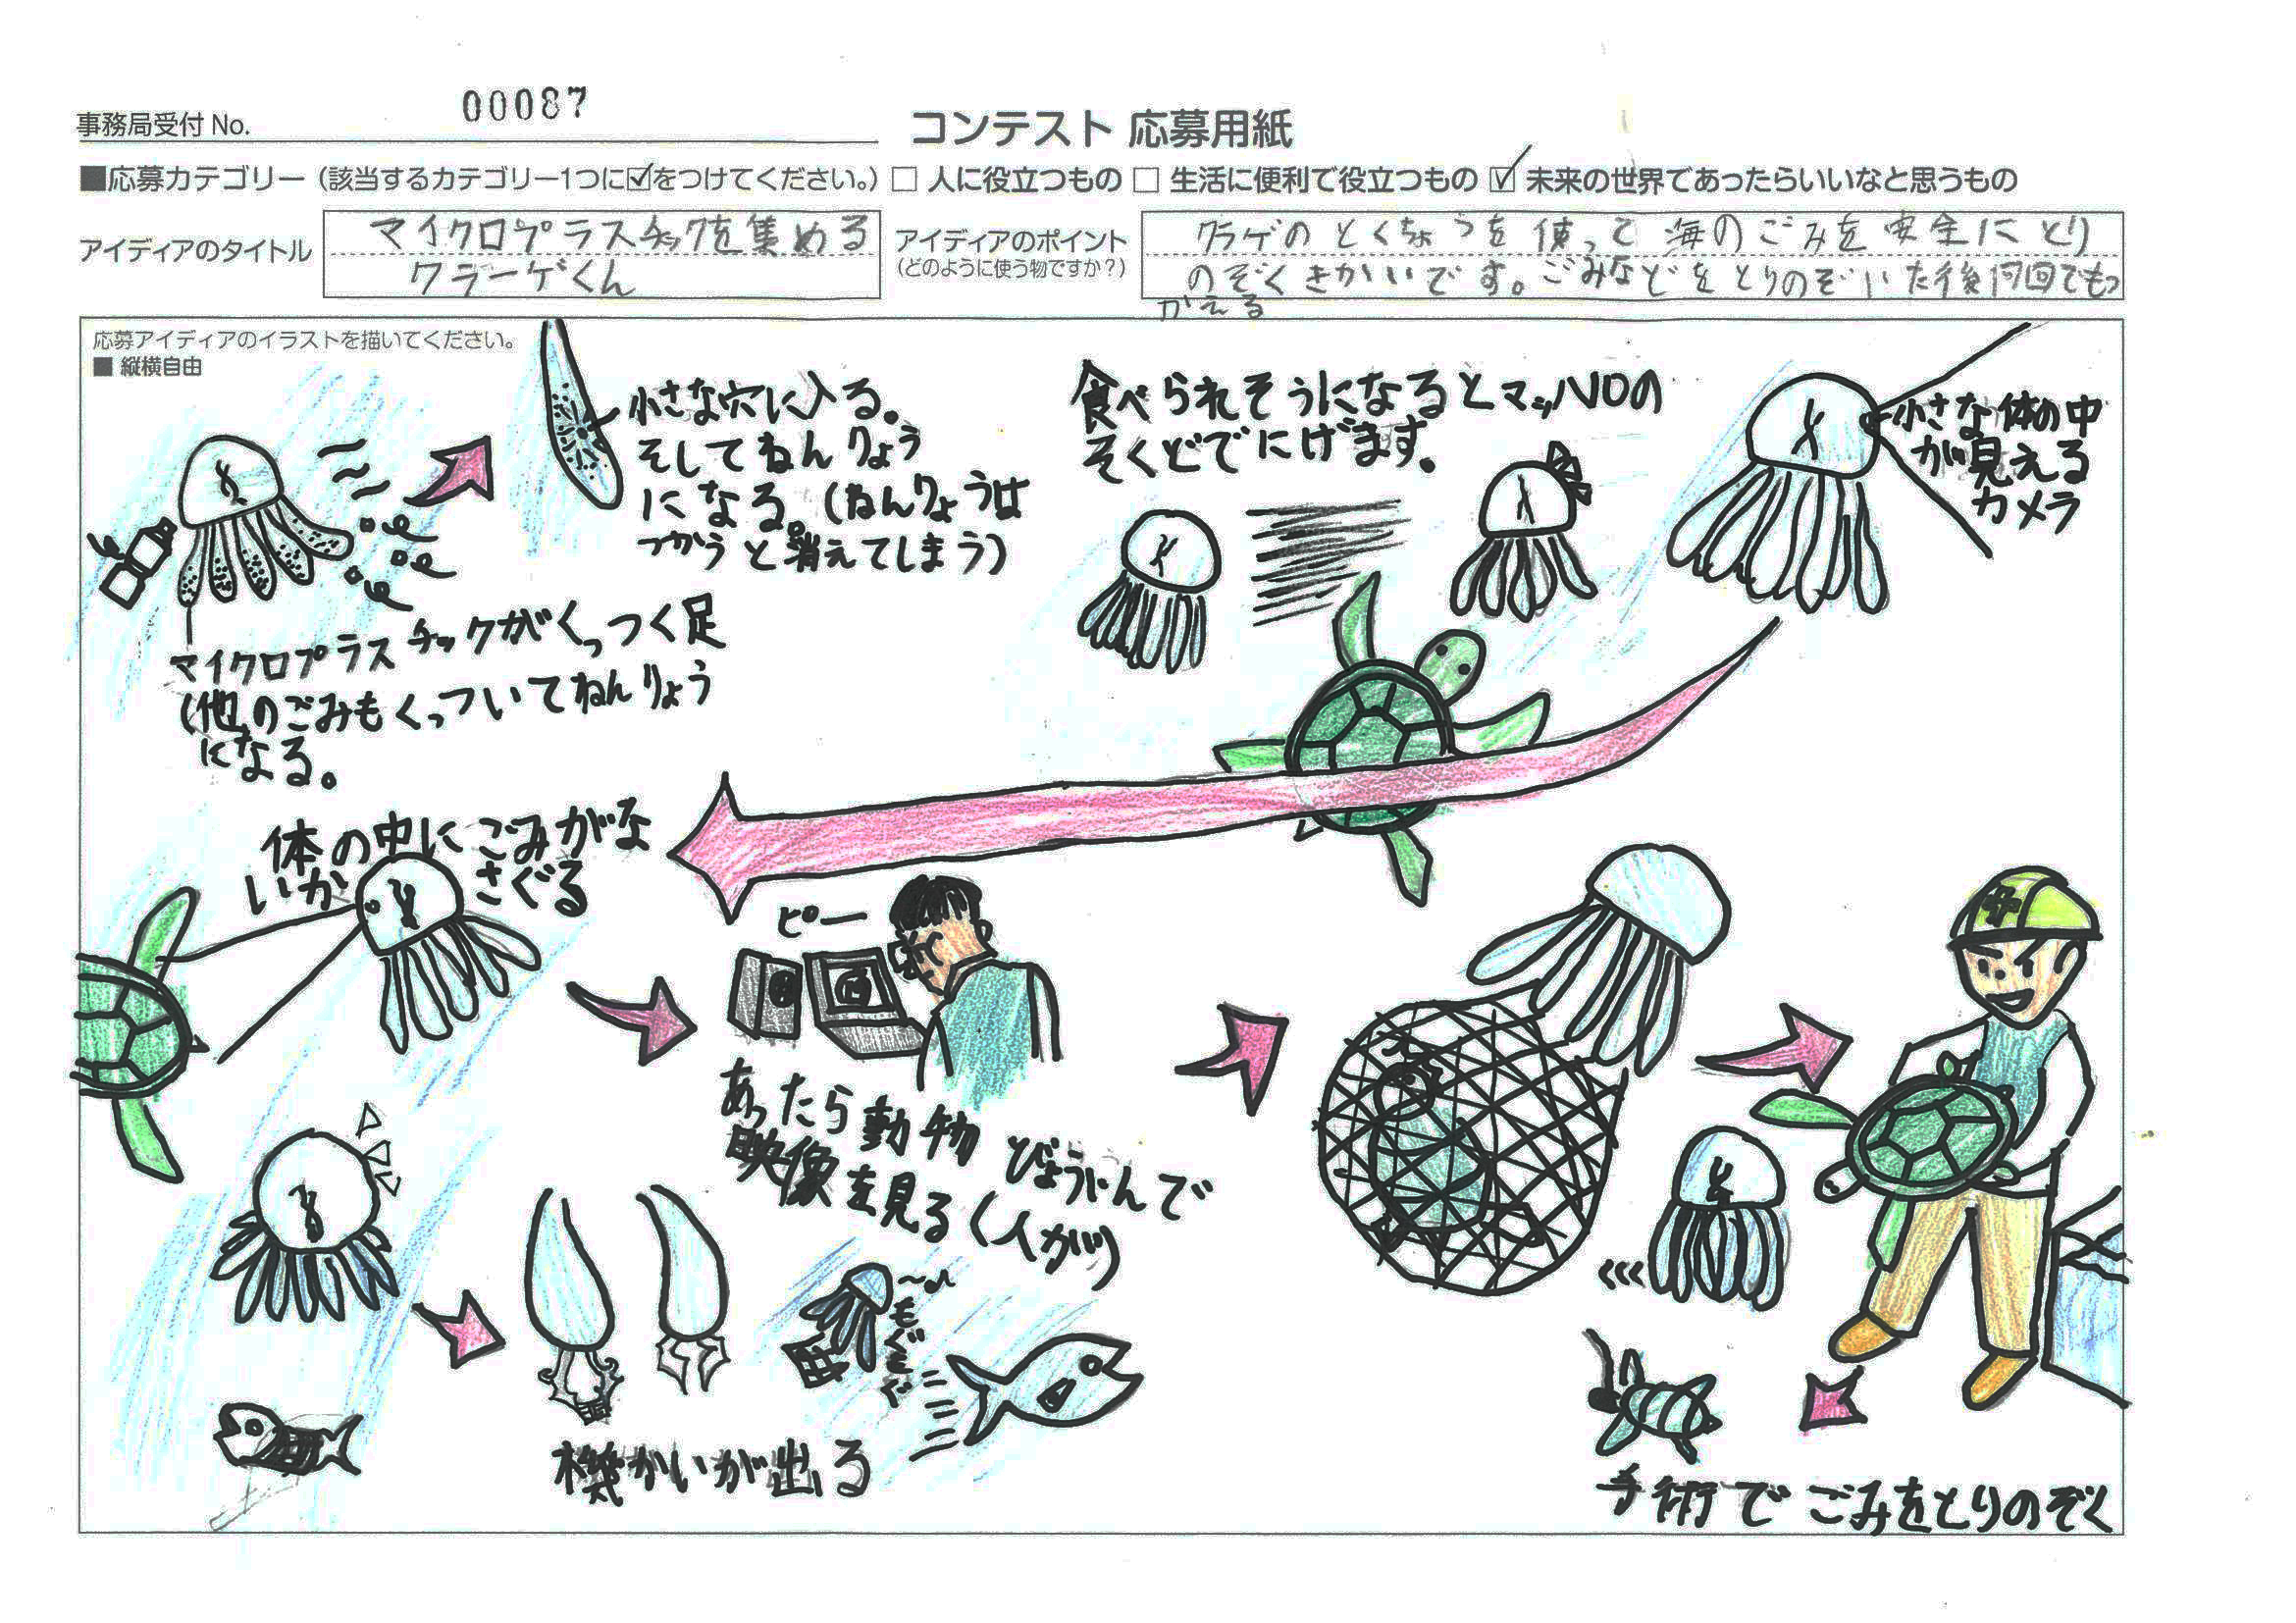 事務局受付 No. 00087
コンテスト 応募用紙
■応募カテゴリー（該当するカテゴリー1つに☑をつけてください。）□ 人に役立つもの □ 生活に便利で役立つもの ☑ 未来の世界であったらいいなと思うもの
アイディアのタイトル
マイクロプラスチックを集める
クラーゲくん
アイディアのポイント
（どのように使う物ですか？）
クラゲのとくちょうを使って海のごみを安全にとり
のぞくきかいです。ごみなどをとりのぞいた後何回でもつ
かえる
応募アイディアのイラストを描いてください。
■ 縦横自由
小さな穴に入る。
そしてねんりょう
になる。（ねんりょうは
つかうと消えてしまう）
マイクロプラスチックがくっつく足
（他のごみもくっついてねんりょう
になる。
食べられそうになるとマッハ10の
そくどでにげます。
小さな体の中
が見える
カメラ
体の中にごみがな
いかさぐる
ピー
あったら動物びょういんで
映像を見る（人が）
もぐもぐ
機かいが出る
手術でごみをとりのぞく